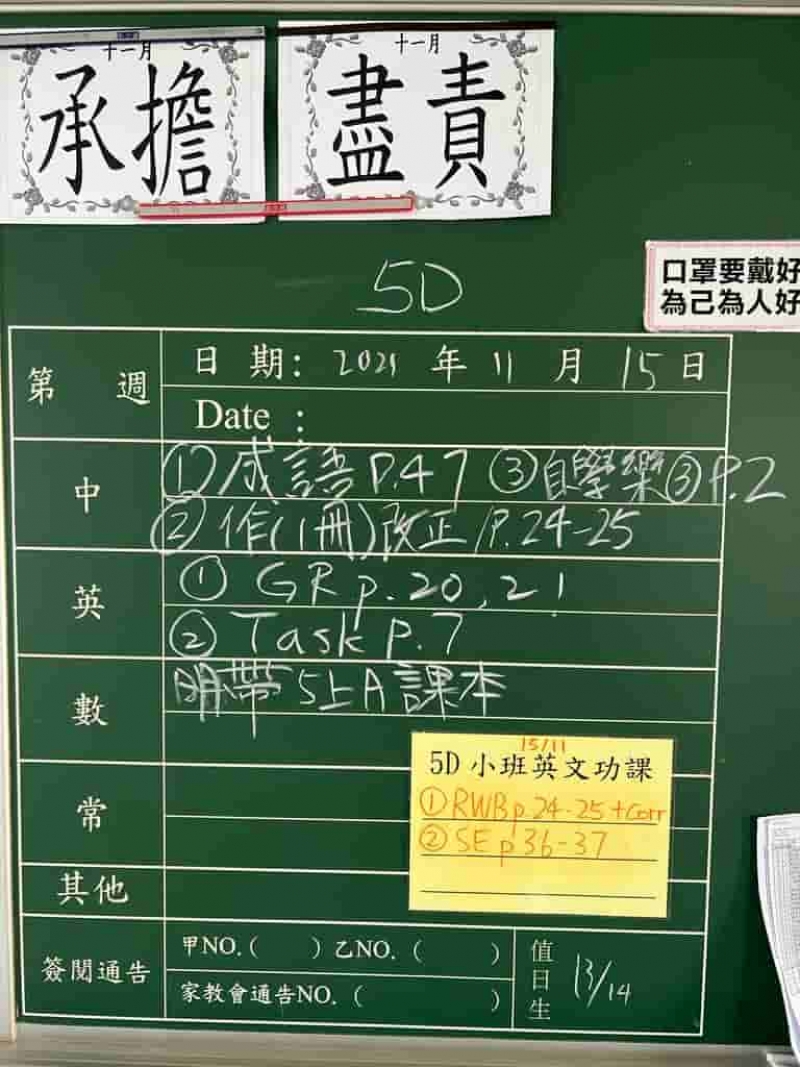 十一月
承擔
十一月
盡責
口罩要戴好
為己為人好
5D
第 週
日 期: 2021 年 11 月 15 日
Date :
中
① 成語 P.47 ③ 自學樂③ P.2
② 作(1冊)改正 P.24-25
英
① GR p.20,21
② Task p.7
數
明帶5上A課本
常
15/11
5D 小班英文功課
① RWB p.24-25 + corr
② SE p36-37
其他
簽閱通告
甲NO.( ) 乙NO.( )
家教會通告NO.( )
值日生 13/14